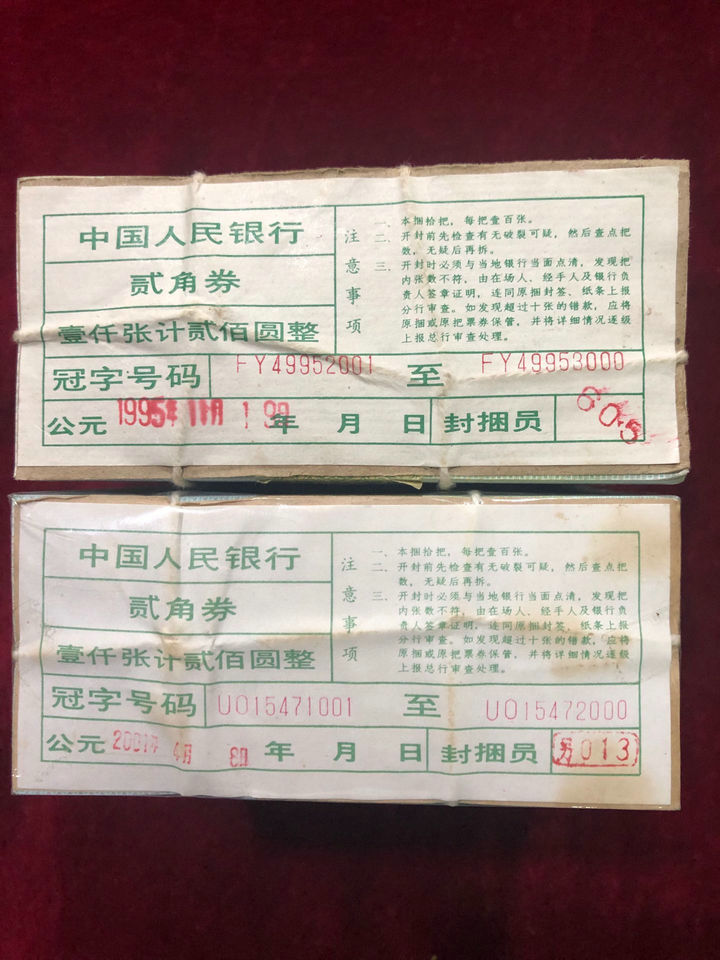 中国人民银行
贰角券
壹仟张计贰佰圆整
注意事项
一、本捆拾把，每把壹百张。
二、开封前先检查有无破裂可疑，然后查点把
数，无疑后再拆。
三、开封时必须与当地银行当面点清，发现把
内张数不符，由在场人、经手人及银行负
责人签章证明，连同原捆封签、纸条上报
分行审查。如发现超过十张的错款，应将
原捆或原把票券保管，并将详细情况逐级
上报总行审查处理。
冠字号码 FY49952001 至 FY49953000
公元 1995年 11月 1 9日 年 月 日 封捆员 605
中国人民银行
贰角券
壹仟张计贰佰圆整
注意事项
一、本捆拾把，每把壹百张。
二、开封前先检查有无破裂可疑，然后查点把
数，无疑后再拆。
三、开封时必须与当地银行当面点清，发现把
内张数不符，由在场人、经手人及银行负
责人签章证明，连同原捆封签、纸条上报
分行审查。如发现超过十张的错款，应将
原捆或原把票券保管，并将详细情况逐级
上报总行审查处理。
冠字号码 UO15471001 至 UO15472000
公元 2001年 4月 8日 年 月 日 封捆员 013